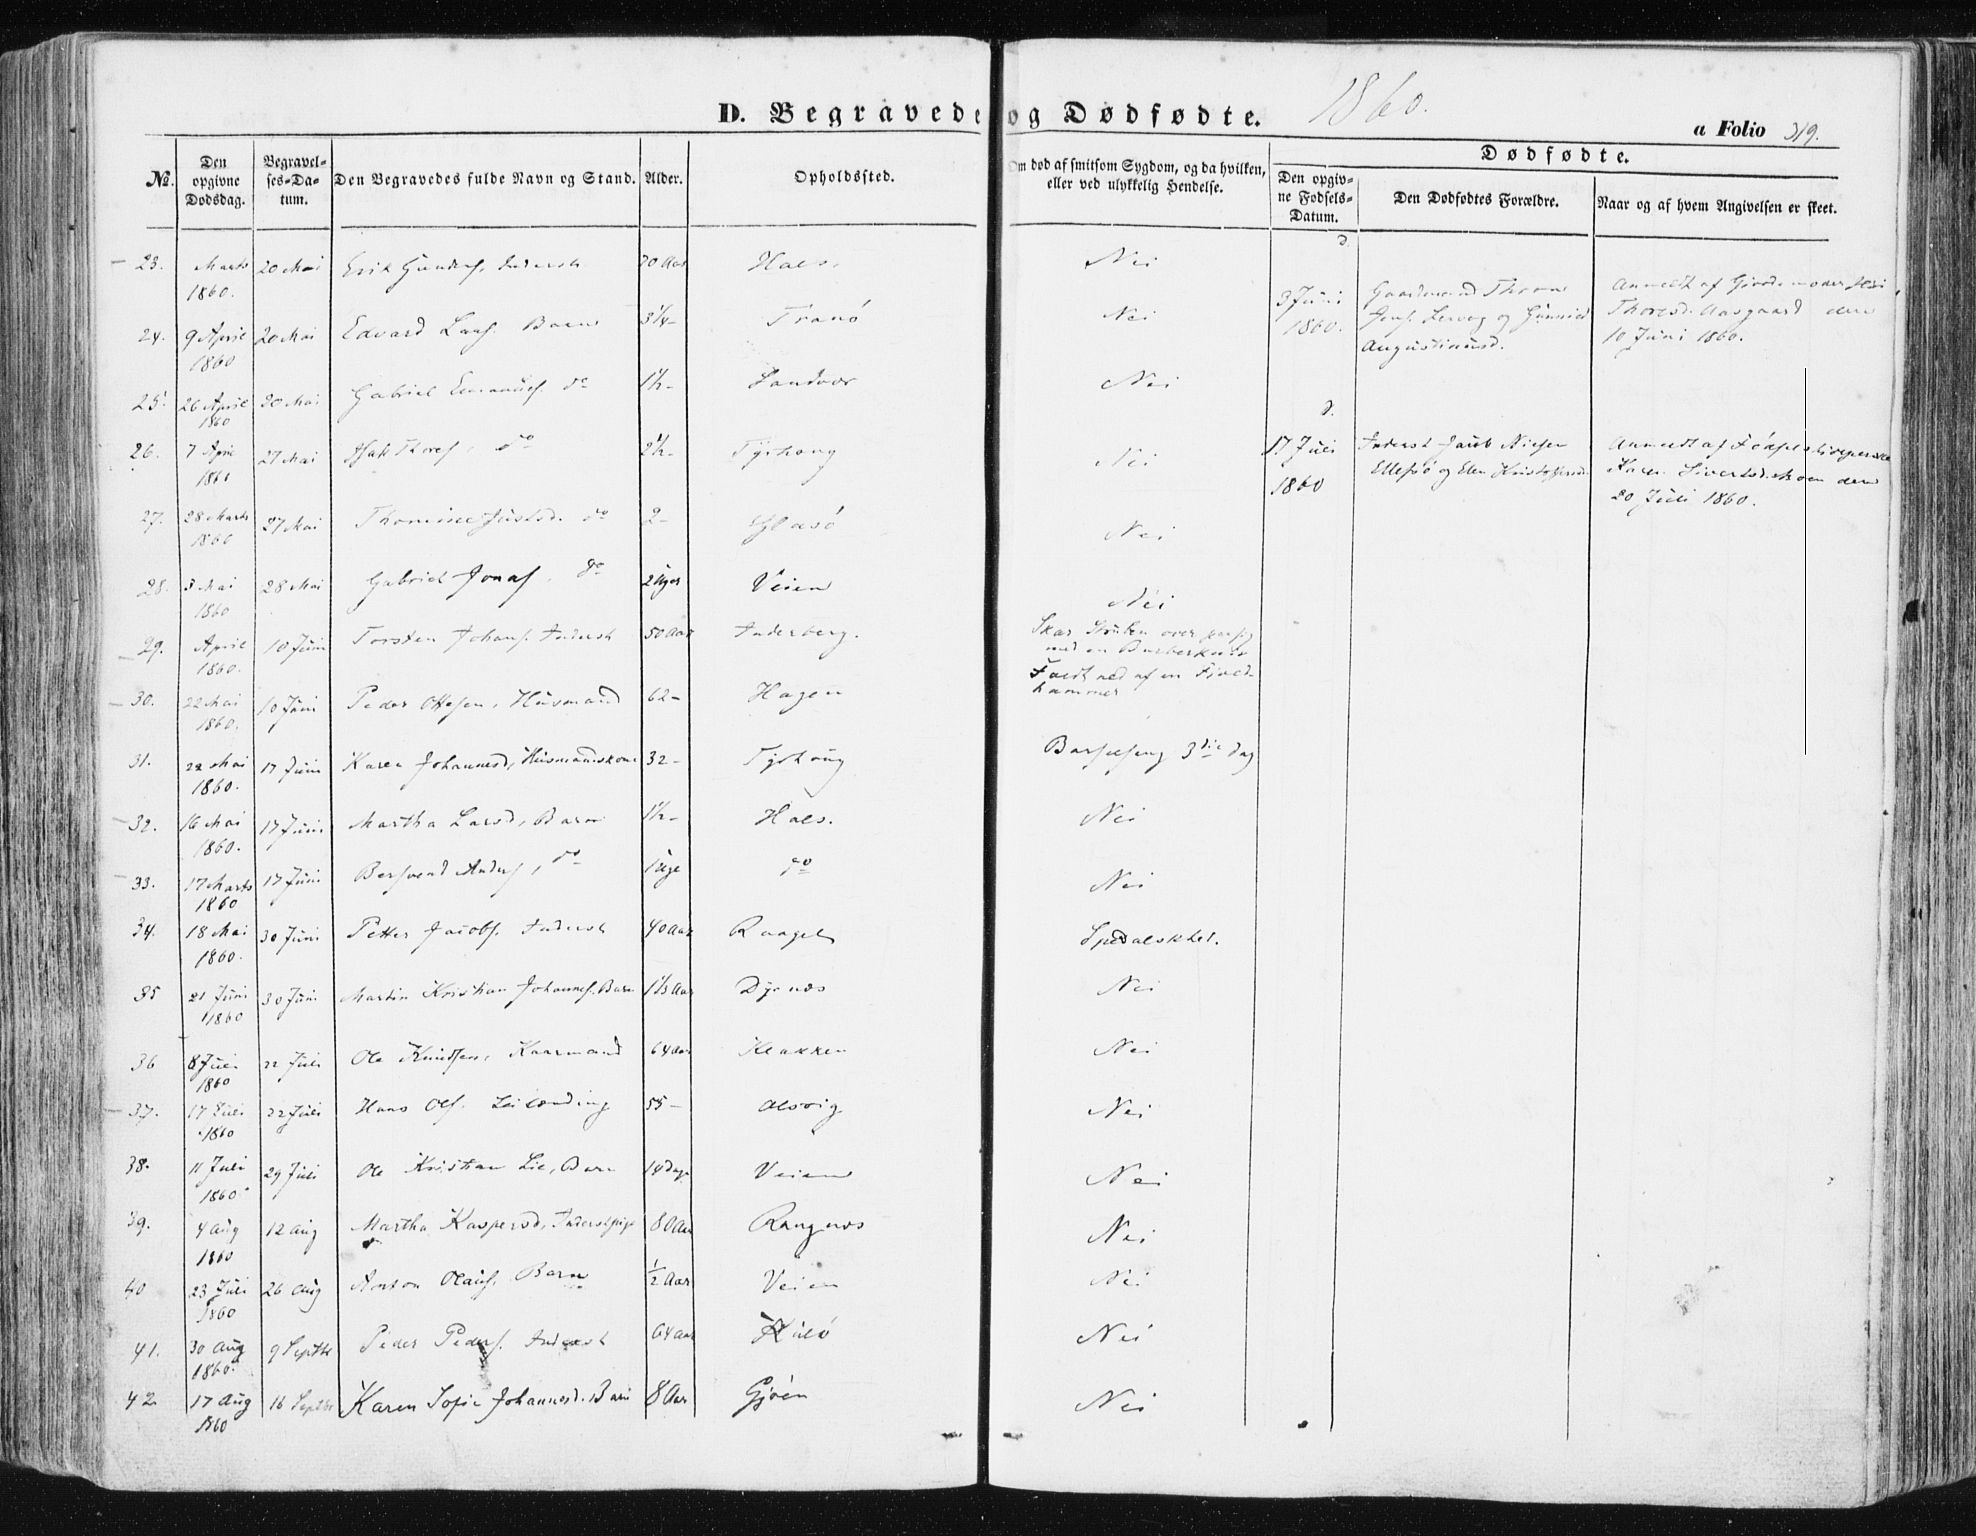 D. Begravede og Dødfødte. 1860.
a Folio 319.
Dødfødte.
No. Den opgivne Dødsdag. Begravelses-Datum. Den Begravedes fulde Navn og Stand. Alder. Opholdssted. Om død af smitsom Sygdom, og da hvilken, eller ved ulykkelig Hendelse. Den opgivne Fødsels-Datum. Den Dødfødtes Forældre. Naar og af hvem Angivelsen er skeet.
23. Marts 1860. 20 Mai Erik Inderst 70 Aar Hals. Nei
24. 9 April 1860 20 Mai Edvard Larss. Barn 3 1/4 - Tranö Nei
25. 26 April 1860 20 Mai Gabriel Emanuels. do 1 1/2 - Sandvær Nei
26. 7 April 1860 27 Mai Isak Thoress, do 2 1/2 - Tyrhoug Nei
27. 28 Marts 1860 27 Mai Thomine Justsd. do 2 - Glasö Nei
28. 3 Mai 1860 28 Mai Gabriel Jonass, do 2 Uger Veien Nei
29. April 1860. 10 Juni Torsten Johans. Inderst 50 Aar Inderberg. Skar Struben over paa sig med en Barberkniv
30. 22 Mai 1860. 10 Juni Peder Ottesen, Husmand 62 - Hagen Faldt ned af en Fjeldhammer
31. 22 Mai 1860. 17 Juni Karen Johannesd, Husmandskone 32 - Tyrhoug Barselseng 3die Dag
32. 16 Mai 1860. 17 Juni Martha Larsd, Barn 1 1/2 - Hals. Nei
33. 17 Marts 1860 17 Juni Bersvend Anders, do 1 Uge do Nei
34. 18 Mai 1860. 30 Juni Petter Jacobs. Inderst 40 Aar Spedalskhet.
35 21 Juni 1860 30 Juni Martin Kristian Johannes. Barn 1 1/3 Aar Dyrnæs Nei
36 8 Juli 1860 22 Juli Ole Knudsen, Kaarmand 64 Aar Klakken Nei
37. 17 Juli 1860 22 Juli Hans Ols. Leilænding 55 - Alsvig Nei
38. 11 Juli 1860. 29 Juli Ole Kristian Lie, Barn 14 Dage Veien Nei
39. 4 Aug 1860 12 Aug Martha Kaspersd, Inderstpige 80 Aar Rangnæs Nei
40 23 Juli 1860 26 Aug Anton Olaus. Barn 1/2 Aar Veien Nei
41. 30 Aug 1860. 9 Septbr Peder Peders. Inderst 64 Aar Kulö Nei
42 17 Aug 1860 16 Septbr Karen Sofie Johannesd. Barn 8 Aar Gjøen Nei
d.
3 Juni Gaardmand Thron Anmeldt af Gjordemoder
1860. Jens. Lervog og Gunnild Thoresd. Aasgaard den
Augustinusd. 10 Juni 1860.
d.
17 Juli Inderst Jacob Nielsen Anmeldt af Fødselshjelperske
1860 Ellefsö og Elen Kristoffersd. Karen Sivertsd. Moen den
20 Juli 1860.